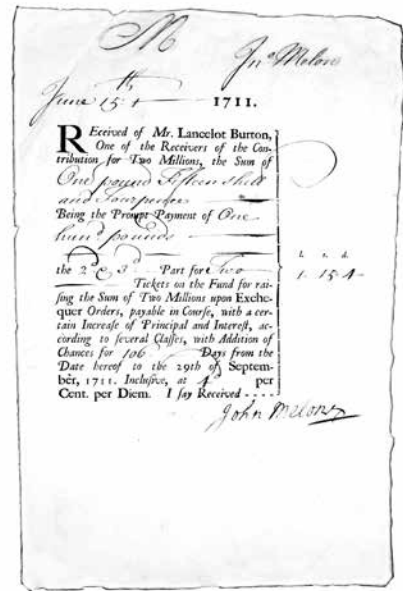 M
Jnº Melon
June 15th 1711.
REceived of Mr. Lancelot Burton,
One of the Receivers of the Con-
tribution for Two Millions, the Sum of
One pound Fifteen shill
and Fourpence
Being the Prompt Payment of One
hund pounds
the 2d & 3d Part for Two
l. s. d.
1 15 4
Tickets on the Fund for rai-
sing the Sum of Two Millions upon Exche-
quer Orders, payable in Course, with a cer-
tain Increase of Principal and Interest, ac-
cording to several Classes, with Addition of
Chances for 106 Days from the
Date hereof to the 29th of Septem-
ber, 1711. Inclusive, at per
Cent. per Diem. I say Received - - - -
John Melon